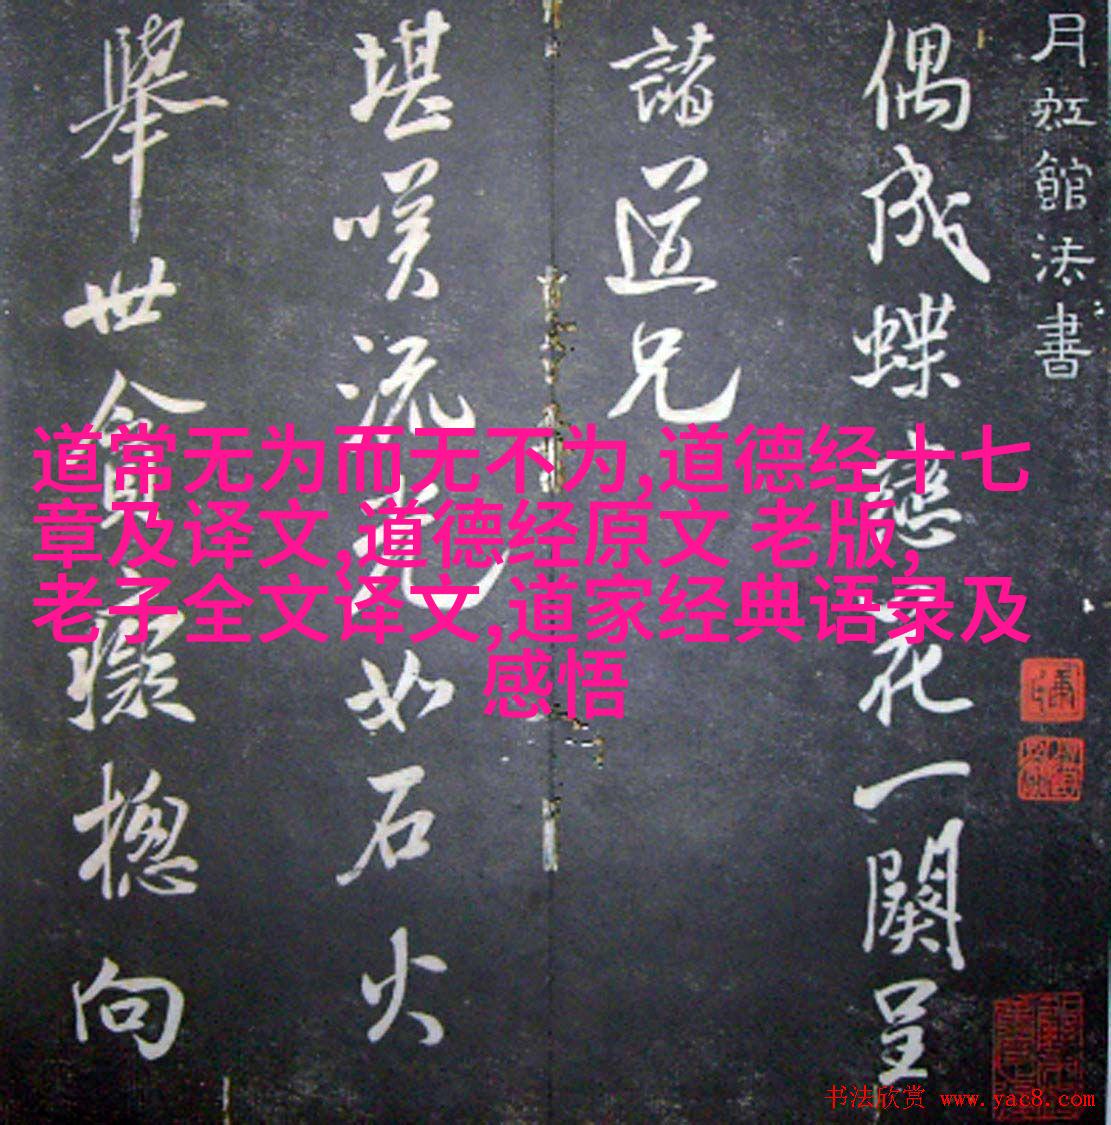 月虹館法書
偶成蝶戀花一闋呈
諸道兄
堪嘆流光如石火
舉世貪癡揔向
道常无为而无不为,道德经十七
章及译文,道德经原文 老版,
老子全文译文,道家经典语录及
感悟
书法欣赏 www.yac8.com